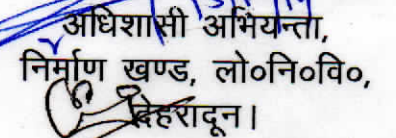 अधिशासी अभियन्ता,
निर्माण खण्ड, लो०नि०वि०,
देहरादून।